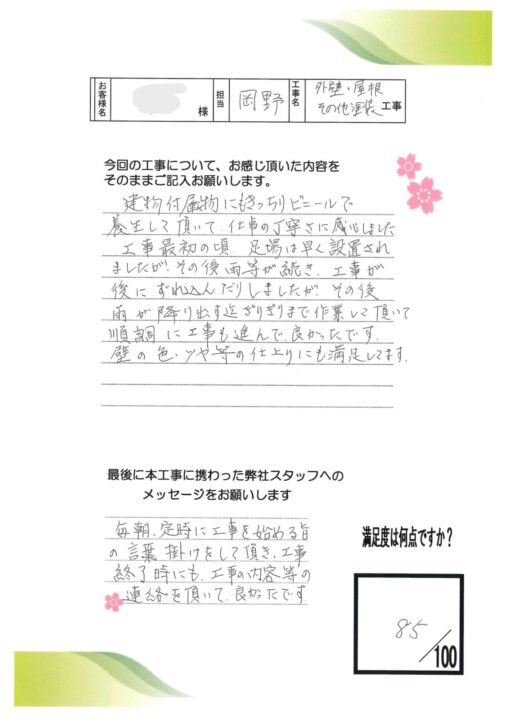 お客様名 様 担当 岡野 工事名 外壁・屋根
その他塗装 工事
今回の工事について、お感じ頂いた内容を
そのままご記入お願いします。
建物付属物にもきっちりビニールで
養生して頂いて、仕事の丁寧さに感心しました
工事最初の頃、足場は早く設置され
ましたが、その後雨等が続き、工事が
後にずれ込んだりしましたが、その後
雨が降り出す迄ぎりぎりまで作業して頂いて
順調に工事も進んで、良かったです。
壁の色・ツヤ等の仕上りにも満足してます。
最後に本工事に携わった弊社スタッフへの
メッセージをお願いします
毎朝、定時に工事を始める旨
の言葉掛けをして頂き、工事
終了時にも、工事の内容等の
連絡を頂いて、良かったです
満足度は何点ですか?
85/100